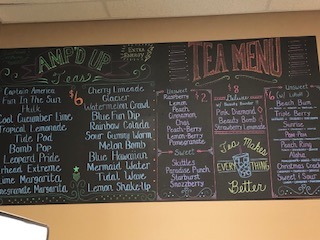 AMP'D UP
Teas
EXTRA
ENERGY
Captain America
Fun In The Sun
Hulk
Cool Cucumber Lime
Tropical Lemonade
Tide Pod
Bomb Pop
Leopard Pride
Airhead Extreme
Lime Margarita
Pomegranate Margarita
$6
Cherry Limeade
Glacier
Watermelon Crawl
Blue Fun Dip
Rainbow Colada
Sour Gummy Worm
Melon Bomb
Blue Hawaiian
Mermaid Water
Tidal Wave
Lemon ShakeUp
TEA MENU
Unsweet
Raspberry
Lemon
Peach
Cinnamon
Chai
Peach-Berry
Lemon-Berry
Pomegranate
$2
Sweet
Skittles
Paradise Punch
Starburst
Snozzberry
$8
Pink Diamond
Beauty Bomb
Strawberry Lemonade
Tea Makes
EVERYTHING
Better
$6
Unsweet
Beach Bum
Triple Berry
Sunrise
Peach Ring
Aloha
Cinnamon Crack
Sweet & Sour